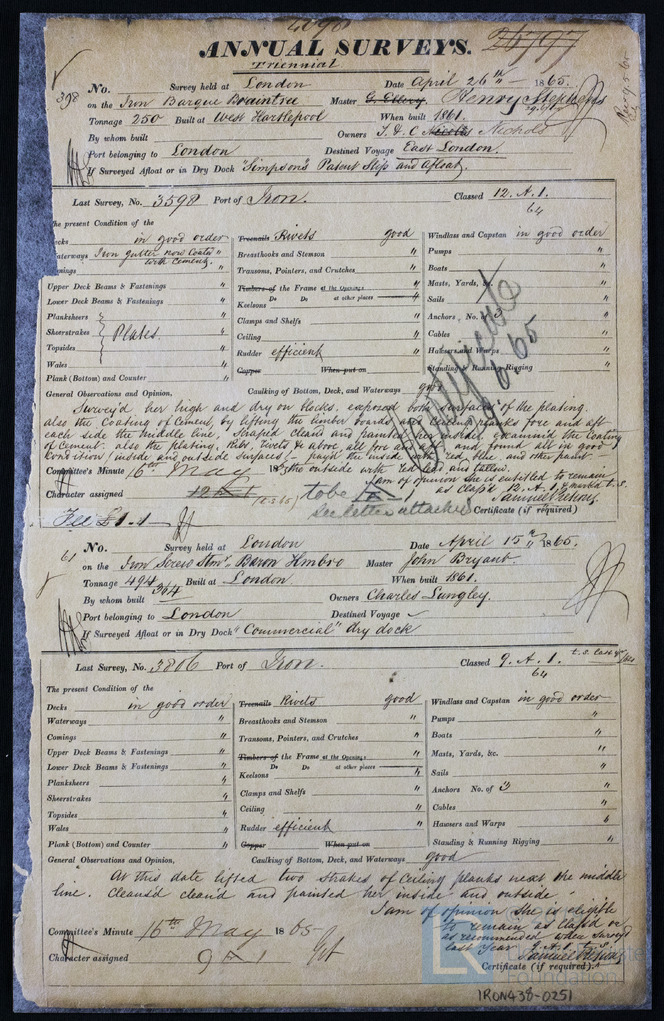 4098
ANNUAL SURVEYS. 26797
Triennial
No. Survey held at London Date April 26th 1865.
398 on the Iron Barque Braintree Master G. Ellery. Henry Stephens
Tonnage 250 Built at West Hartlepool When built 1861.
By whom built Owners T. & C. Nichols
Port belonging to London Destined Voyage East London.
If Surveyed Afloat or in Dry Dock "Simpson's Patent Slip and Afloat.
Last Survey, No. 3598 Port of Iron. Classed 12. A. 1.
64
The present Condition of the
Decks in good order Treenails Rivets good Windlass and Capstan in good order
Waterways Iron gutter now Coated with Cement. Breasthooks and Stemson " Pumps "
Comings " Transoms, Pointers, and Crutches " Boats "
Upper Deck Beams & Fastenings " Timbers of the Frame at the Openings " Masts, Yards, &c. "
Lower Deck Beams & Fastenings " Do Do at other places Sails "
Planksheers Keelsons " Anchors, No. of 3 "
Sheerstrakes Plates. Clamps and Shelfs " Cables "
Topsides Ceiling " Hawsers and Warps "
Wales Rudder efficient Standing & Running Rigging "
Plank (Bottom) and Counter " Copper When put on
General Observations and Opinion, Caulking of Bottom, Deck, and Waterways good
Survey'd her high and dry on blocks, exposed both surfaces of the plating.
also the Coating of Cement, by lifting the limber boards and ceiling planks fore and aft
each side the middle line, Scraped cleans and painted her inside, examin'd the Coating
of Cement. also the plating, Ribs, Rivets &c &c all fore and aft and found all in good
Condition (inside and outside surfaces) - pay'd the inside with red lead and other paint
the outside with red lead and tallow.
Committee's Minute 16th May 1865
I am of opinion she is entitled to remain
Character assigned 12 A 1 to be A 1 as Class'd 12. A. 1. & marked t. S.
see letter attached Samuel Pretious
Fee £1.1 Certificate (if required)
61 No. Survey held at London Date April 15th 1865.
on the Iron Screw Stmr. Baron Hmbro Master John Bryant.
Tonnage 494 364 Built at London. When built 1861.
By whom built Owners Charles Lungley.
Port belonging to London Destined Voyage
If Surveyed Afloat or in Dry Dock "Commercial" dry dock
Last Survey, No. 3806 Port of Iron. Classed 9. A. 1. t.S. last yr
64
The present Condition of the
Decks in good order Treenails Rivets good Windlass and Capstan in good order
Waterways " Breasthooks and Stemson " Pumps "
Comings " Transoms, Pointers, and Crutches " Boats "
Upper Deck Beams & Fastenings " Timbers of the Frame at the Openings " Masts, Yards, &c. "
Lower Deck Beams & Fastenings " Do Do at other places Sails "
Planksheers " Keelsons " Anchors No. of 3 "
Sheerstrakes " Clamps and Shelfs " Cables "
Topsides " Ceiling " Hawsers and Warps "
Wales " Rudder efficient Standing & Running Rigging "
Plank (Bottom) and Counter " Copper When put on
General Observations and Opinion, Caulking of Bottom, Deck, and Waterways good
At this date lifted two strakes of Ceiling planks next the middle
line. Cleans'd clean'd and painted her inside and outside -
I am of opinion she is eligible
to remain as Class'd or
Committee's Minute 16th May 1865 as recommended when Survey'd
last Year 9. A. 1. t. S.
Character assigned 9 A 1 Samuel Pretious
Certificate (if required).
Foundation
IRON438-0251